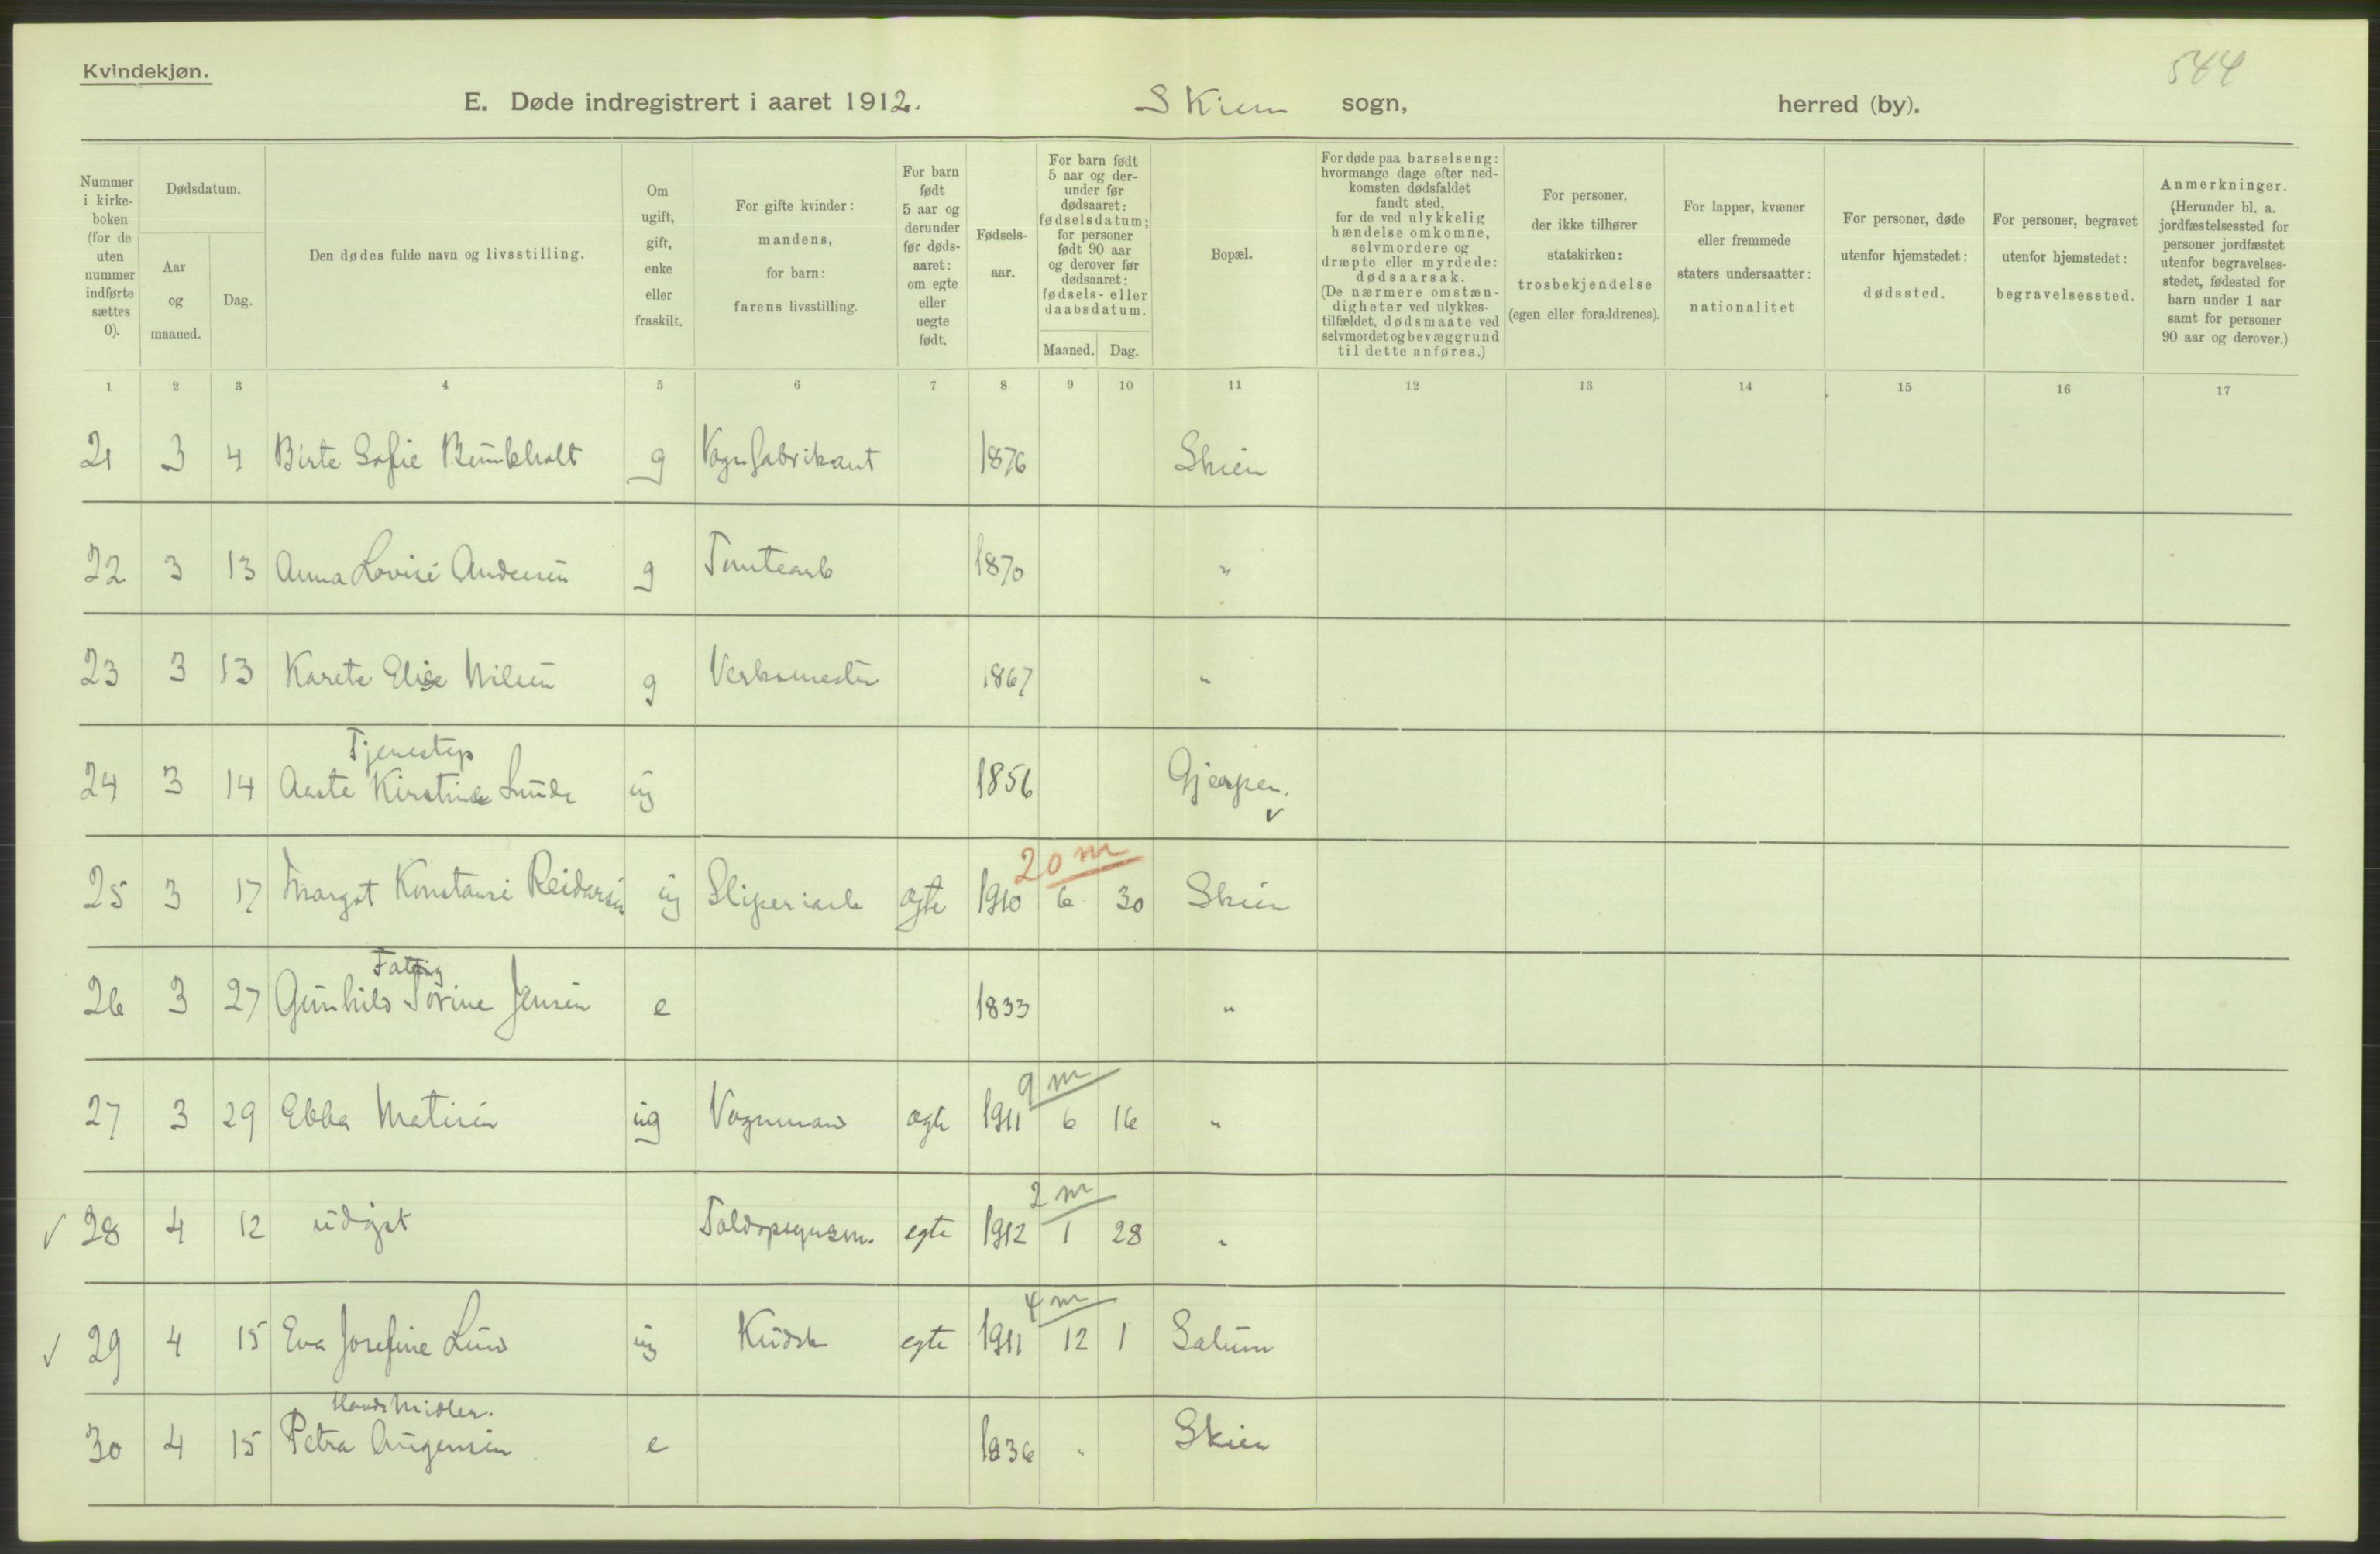 Kvindekjøn.
544
E. Døde indregistrert i aaret 1912. Skien sogn, herred (by).
Nummer i kirkeboken (for de uten nummer indførte sættes 0).
Dødsdatum.
Aar og maaned.
Dag.
Den dødes fulde navn og livsstilling.
Om ugift, gift, enke eller fraskilt.
For gifte kvinder: mandens, for barn: farens livsstilling.
For barn født 5 aar og derunder før dødsaaret: om egte eller uegte født.
Fødselsaar.
For barn født 5 aar og derunder før dødsaaret: fødselsdatum; for personer født 90 aar og derover før dødsaaret: fødsels- eller daabsdatum.
Maaned. Dag.
Bopæl.
For døde paa barselseng: hvormange dage efter nedkomsten dødsfaldet fandt sted, for de ved ulykkelig hændelse omkomne, selvmordere og dræpte eller myrdede: dødsaarsak. (De nærmere omstændigheter ved ulykkestilfældet, dødsmaate ved selvmordet og bevæggrund til dette anføres.)
For personer, der ikke tilhører statskirken: trosbekjendelse (egen eller forældrenes).
For lapper, kvæner eller fremmede staters undersaatter: nationalitet
For personer, døde utenfor hjemstedet: dødssted.
For personer, begravet utenfor hjemstedet: begravelsessted.
Anmerkninger. (Herunder bl. a. jordfæstelsessted for personer jordfæstet utenfor begravelsesstedet, fødested for barn under 1 aar samt for personer 90 aar og derover.)
1 2 3 4 5 6 7 8 9 10 11 12 13 14 15 16 17
21 3 4 Birte Sofie g Vognfabrikant 1876 Skien
22 3 13 Anna Lovise Andersen g Tomtearb 1870 "
23 3 13 Karete Elise Nilsen g Verksmester 1867 "
Tjenestep
24 3 14 Aaste Kirstine Lunde ug 1856 Gjerpen. v
20 m
25 3 17 Margot Konstanse Reidarsen ug Sliperiarb egte 1910 6 30 Skien
Fattig
26 3 27 Gunhild Torine Jensen e 1833 "
9 m
27 3 29 Ebba Matisen ug Vognmand egte 1911 6 16 "
2 m
✓ 28 4 12 udøpt egte 1912 1 28 "
4 m
✓ 29 4 15 Eva Josefine Lund ug Kudsk egte 1911 12 1 Solum
30 4 15 Petra e 1836 " Skien